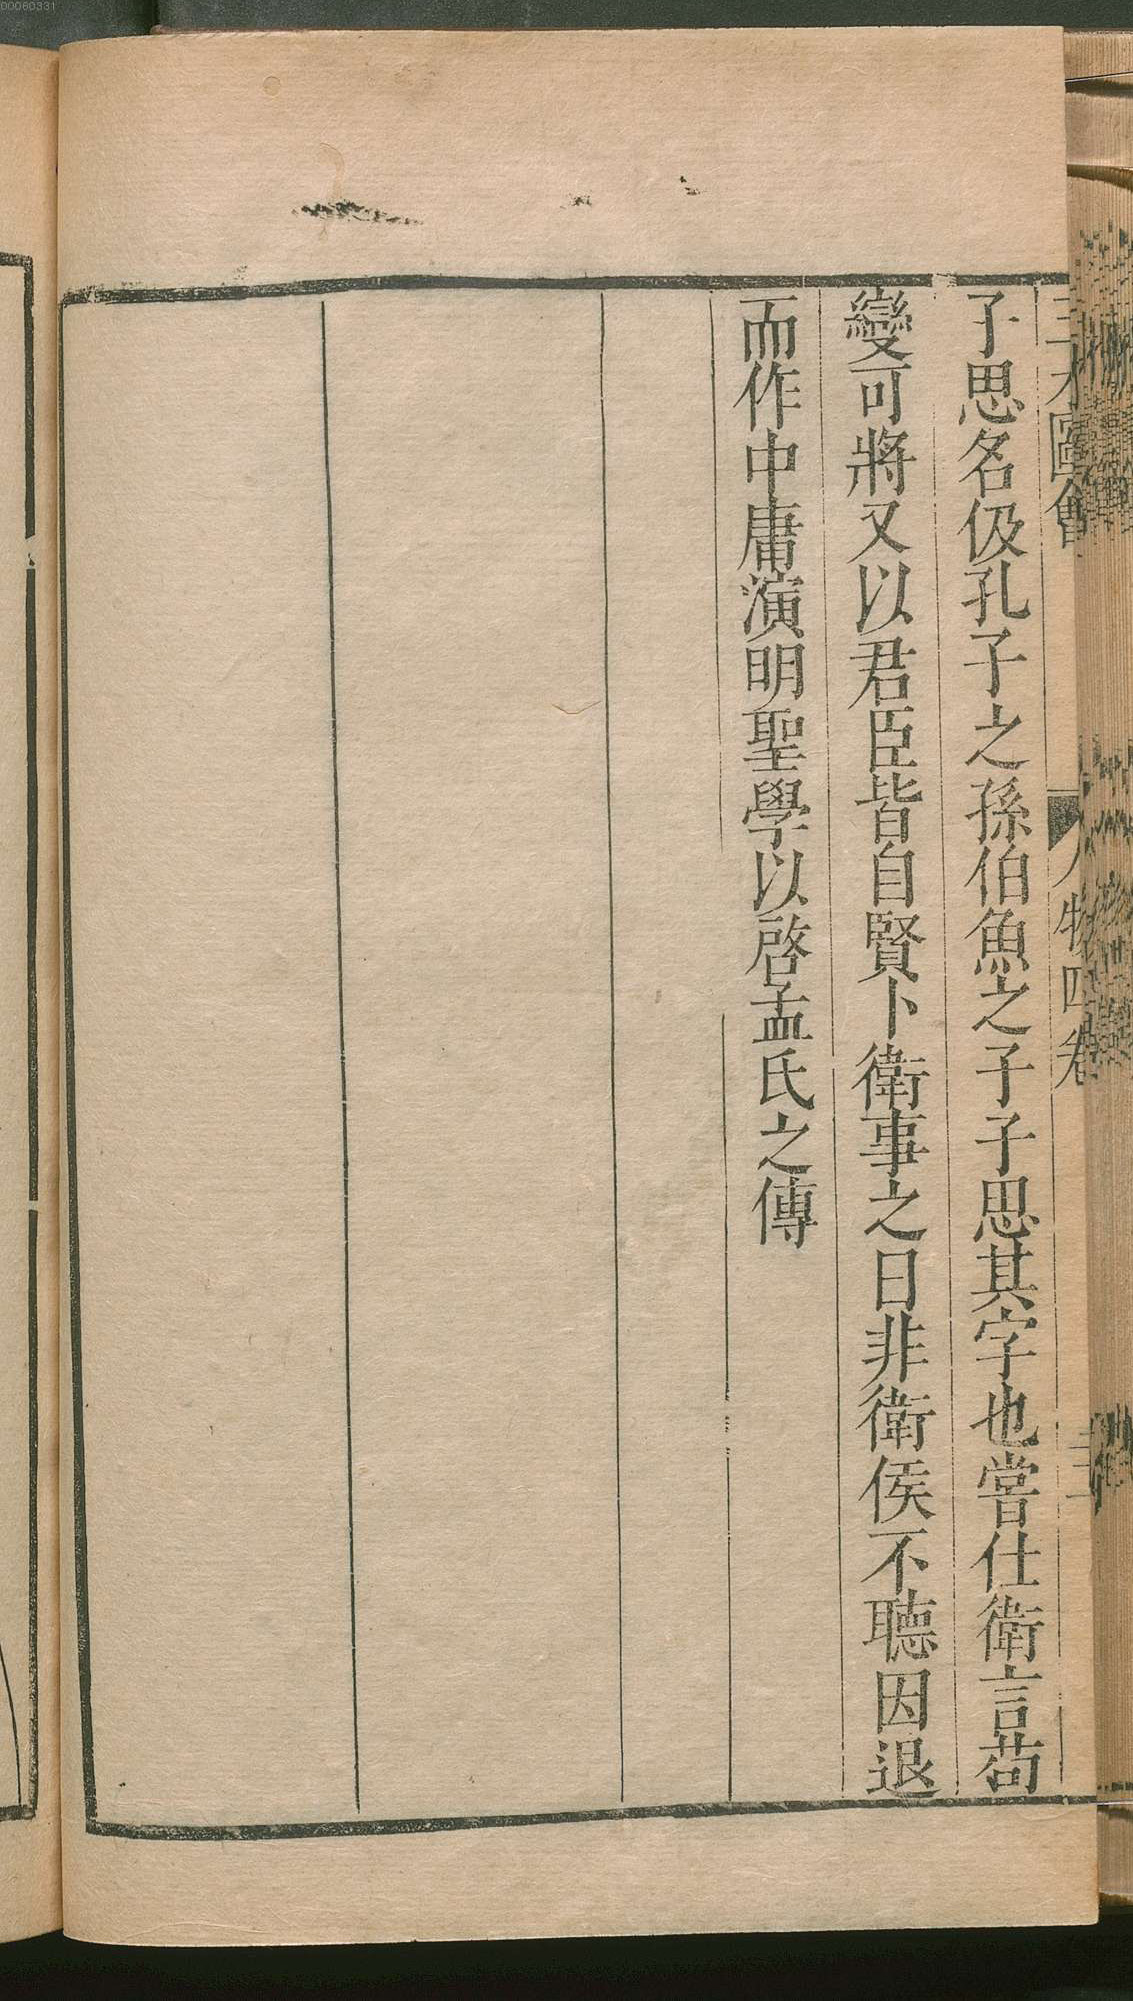 子思名伋孔子之孫伯魚之子子思其字也嘗仕衛言苟
變可將又以君臣皆自賢卜衛事之日非衛侯不聽因退
而作中庸演明聖學以啓孟氏之傳
三才圖會 人物四卷
00060331